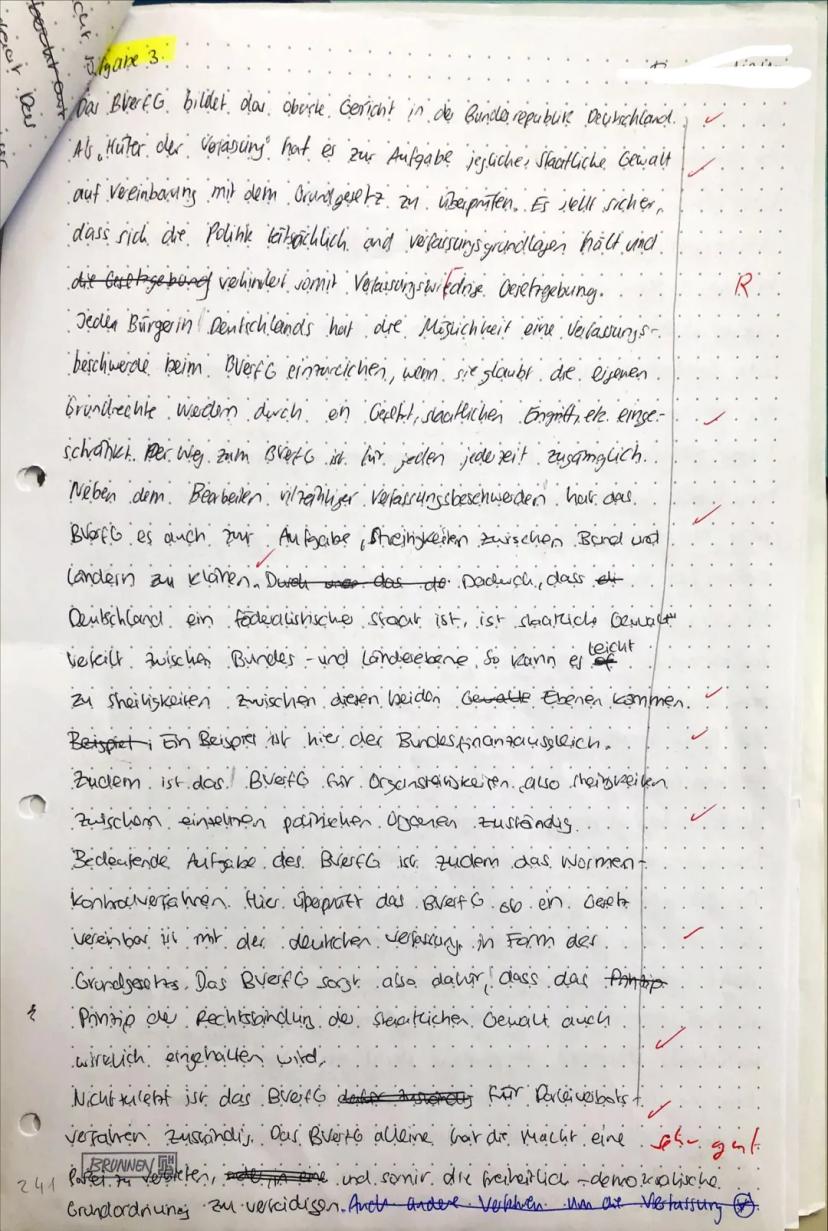 Aufgabe 3.
Das BVerfG bildet das oberste Gericht in der Bundesrepublik Deutschland.
Als "Hüter der Verfassung" hat es zur Aufgabe jegliche staatliche Gewalt
auf Vereinbarung mit dem Grundgesetz zu überprüfen. Es stellt sicher,
dass sich die Politik tatsächlich and verfassungsgrundlagen hält und
die Gesetzgebung verhindert somit Verfassungswiedrige Gesetzgebung.
R
Jeden Bürgerin Deutschlands hat die Möglichkeit eine Verfassungs-
beschwerde beim BVerfG einzureichen, wenn sie glaubt die eigenen
Grundrechte werden durch ein Gesetz, staatlichen Eingriff, etc. einge-
schränkt. Der Weg zum BVerfG ist für jeden jederzeit zugänglich.
Neben dem Bearbeiten vielzähliger Verfassungsbeschwerden hat das
BVerfG es auch zur Aufgabe, Streitigkeiten zwischen Bund und
Ländern zu klären. Durch das Dadurch, dass
Deutschland ein föderalistische Staat ist, ist staatliche Gewalt
verteilt zwischen Bundes- und Länderebene. So kann es leicht
zu Streitigkeiten zwischen diesen beiden Gewalte Ebenen kommen.
Beispiel: Ein Beispiel ist hier der Bundesfinanzausgleich.
Zudem ist das BVerfG für Organstreitigkeiten, also Streitigkeiten
zwischen einzelnen politischen Organen zuständig.
Bedeutende Aufgabe des BVerfG ist zudem das Normen-
kontrollverfahren. Hier überprüft das BVerfG ob ein Gesetz
vereinbar ist mit der deutschen Verfassung, in Form des
Grundgesetzs. Das BVerfG sorgt also dafür, dass das Prinzip
Prinzip der Rechtsbindung der staatlichen Gewalt auch
wirklich eingehalten wird.
Nicht zuletzt ist das BVerfG dafür zuständig für Parteiverbots-
verfahren zuständig. Das BVerfG alleine hat die Macht eine
sehr gut
Partei zu verbieten, und somit die freiheitlich-demokratische
BRUNNEN
241
Grundordnung zu verteidigen. Auch andere Verfahren um die Verfassung